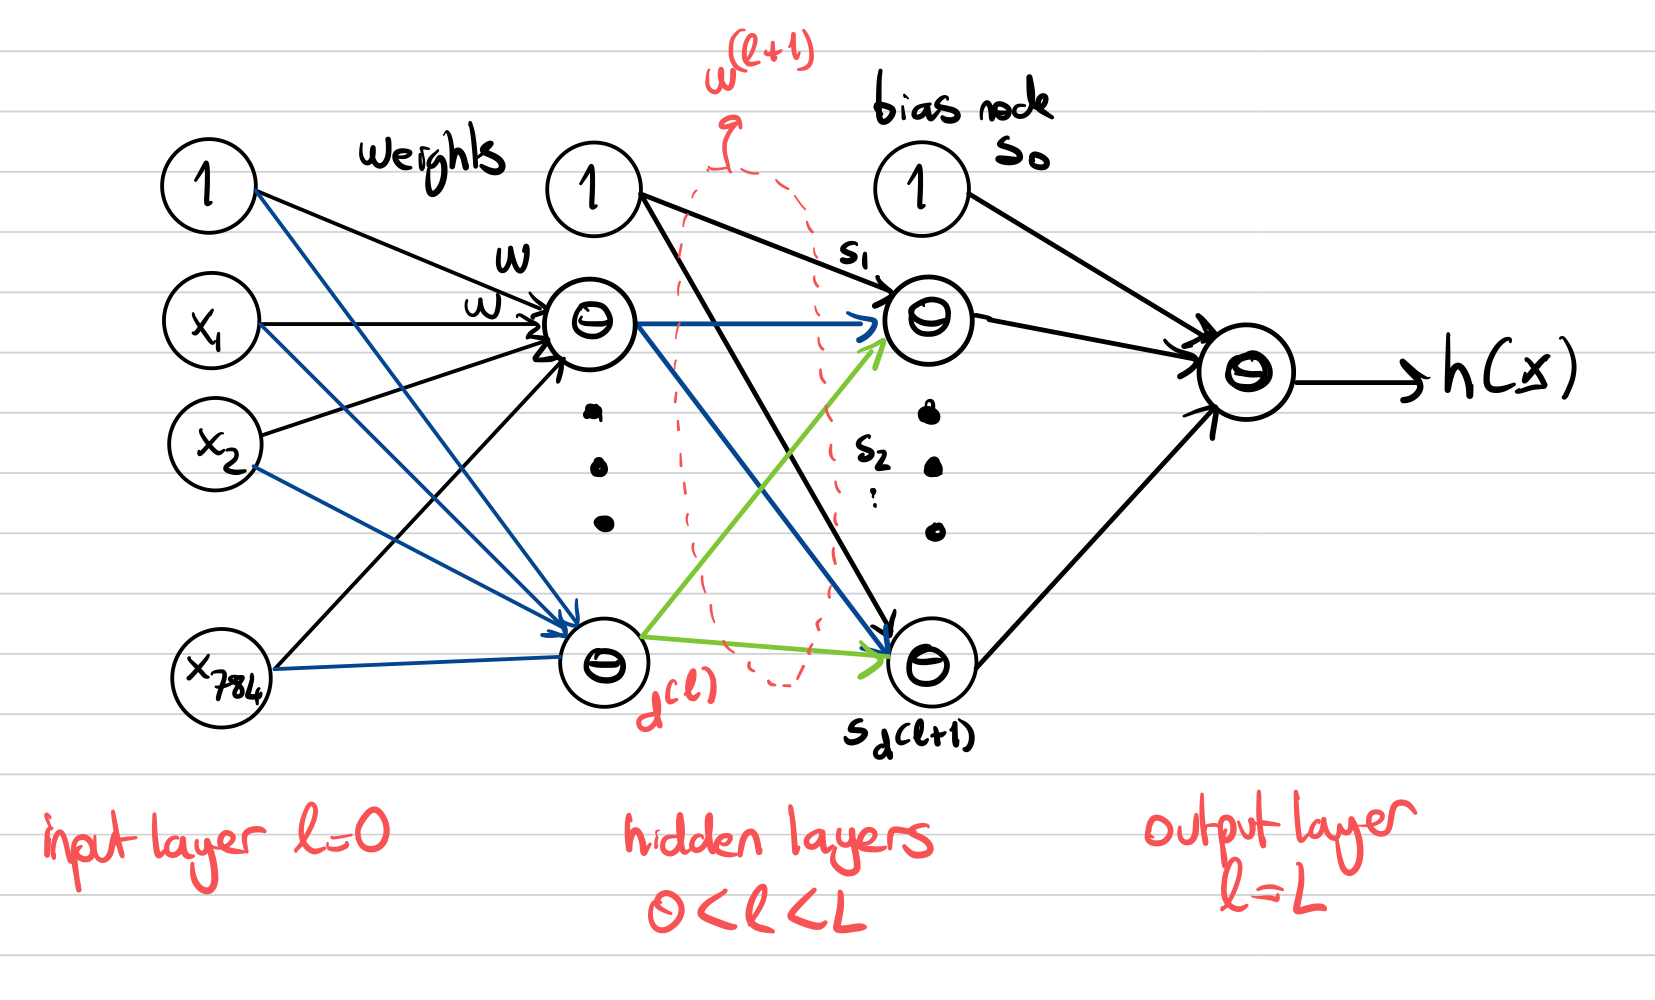 w^(l+1)
bias node
s₀
weights
1
1
1
w
s₁
w
x₁
θ
θ
θ
h(x)
x₂
s₂
⋮
x₇₈₄
θ
θ
d^(l)
s_d^(l+1)
input layer l=0
hidden layers
0<l<L
output layer
l=L